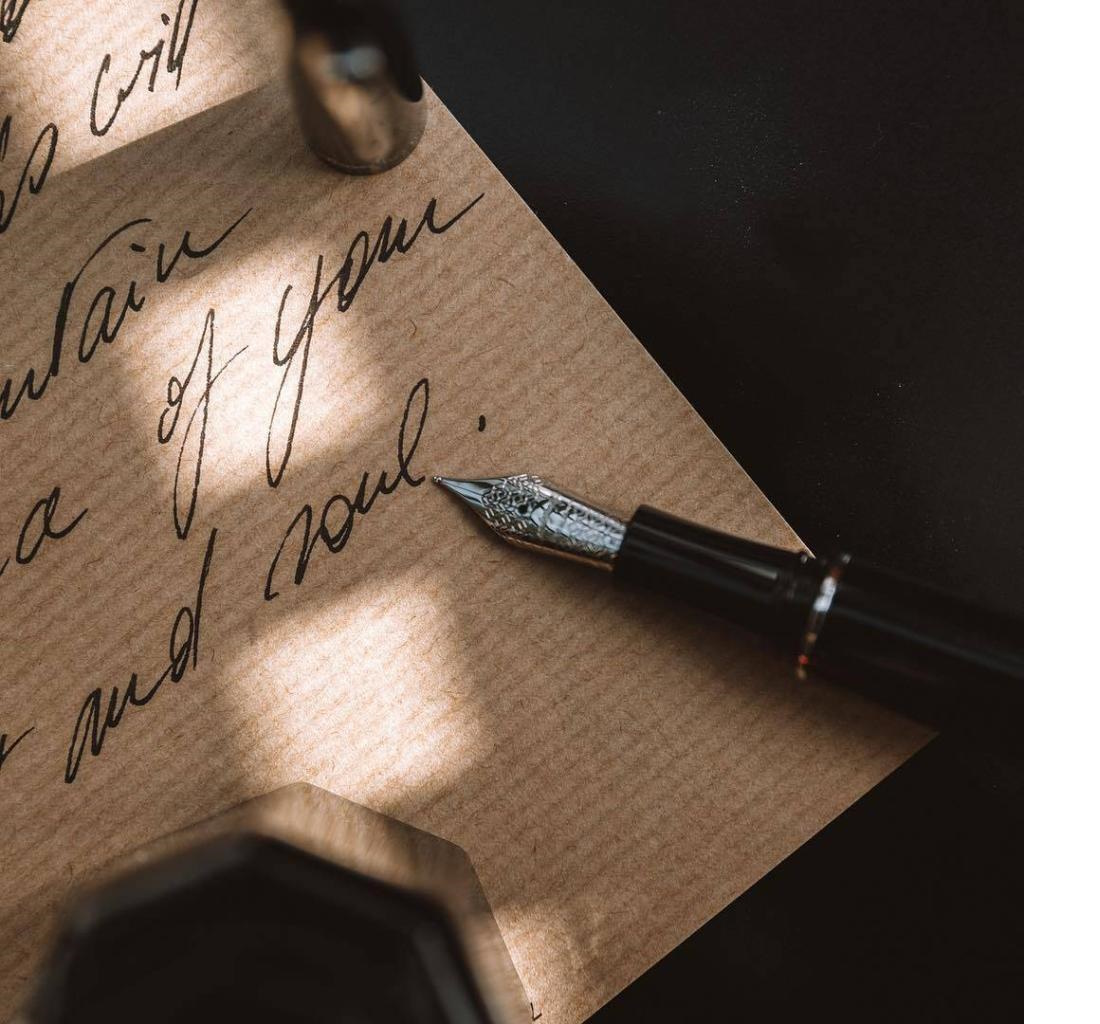 is will
ntain
a of your
and soul.